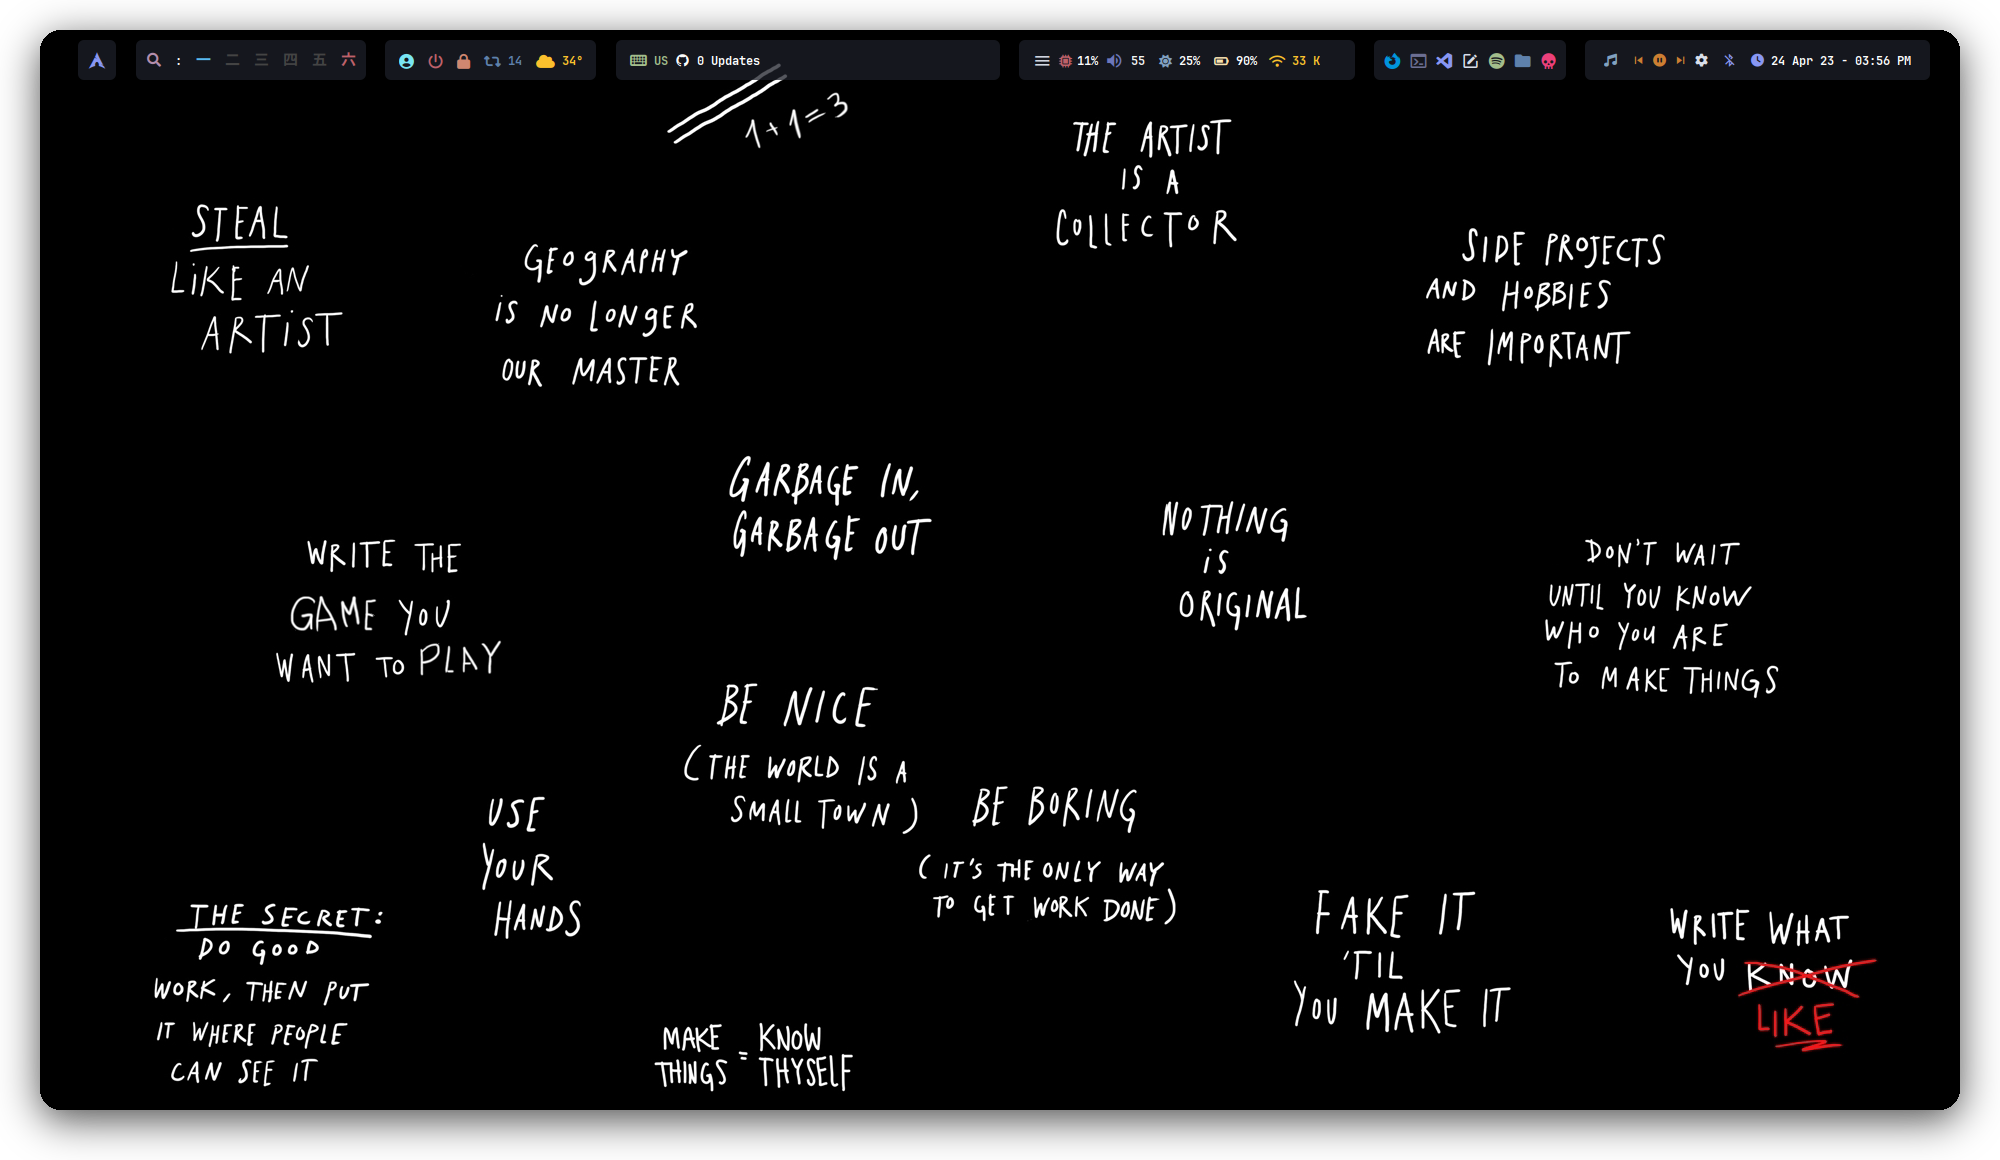 : 一 二 三 四 五 六
14
34°
US
0 Updates
11%
55
25%
90%
33 K
24 Apr 23 - 03:56 PM
1+1=3
THE ARTIST
IS A
COLLECTOR
STEAL
LIKE AN
ARTIST
GEOGRAPHY
IS NO LONGER
OUR MASTER
SIDE PROJECTS
AND HOBBIES
ARE IMPORTANT
GARBAGE IN,
GARBAGE OUT
NOTHING
IS
ORIGINAL
WRITE THE
GAME YOU
WANT TO PLAY
DON'T WAIT
UNTIL YOU KNOW
WHO YOU ARE
TO MAKE THINGS
BE NICE
(THE WORLD IS A
SMALL TOWN)
USE
YOUR
HANDS
BE BORING
(IT'S THE ONLY WAY
TO GET WORK DONE)
THE SECRET:
DO GOOD
WORK, THEN PUT
IT WHERE PEOPLE
CAN SEE IT
FAKE IT
'TIL
YOU MAKE IT
WRITE WHAT
YOU KNOW
LIKE
MAKE THINGS = KNOW THYSELF